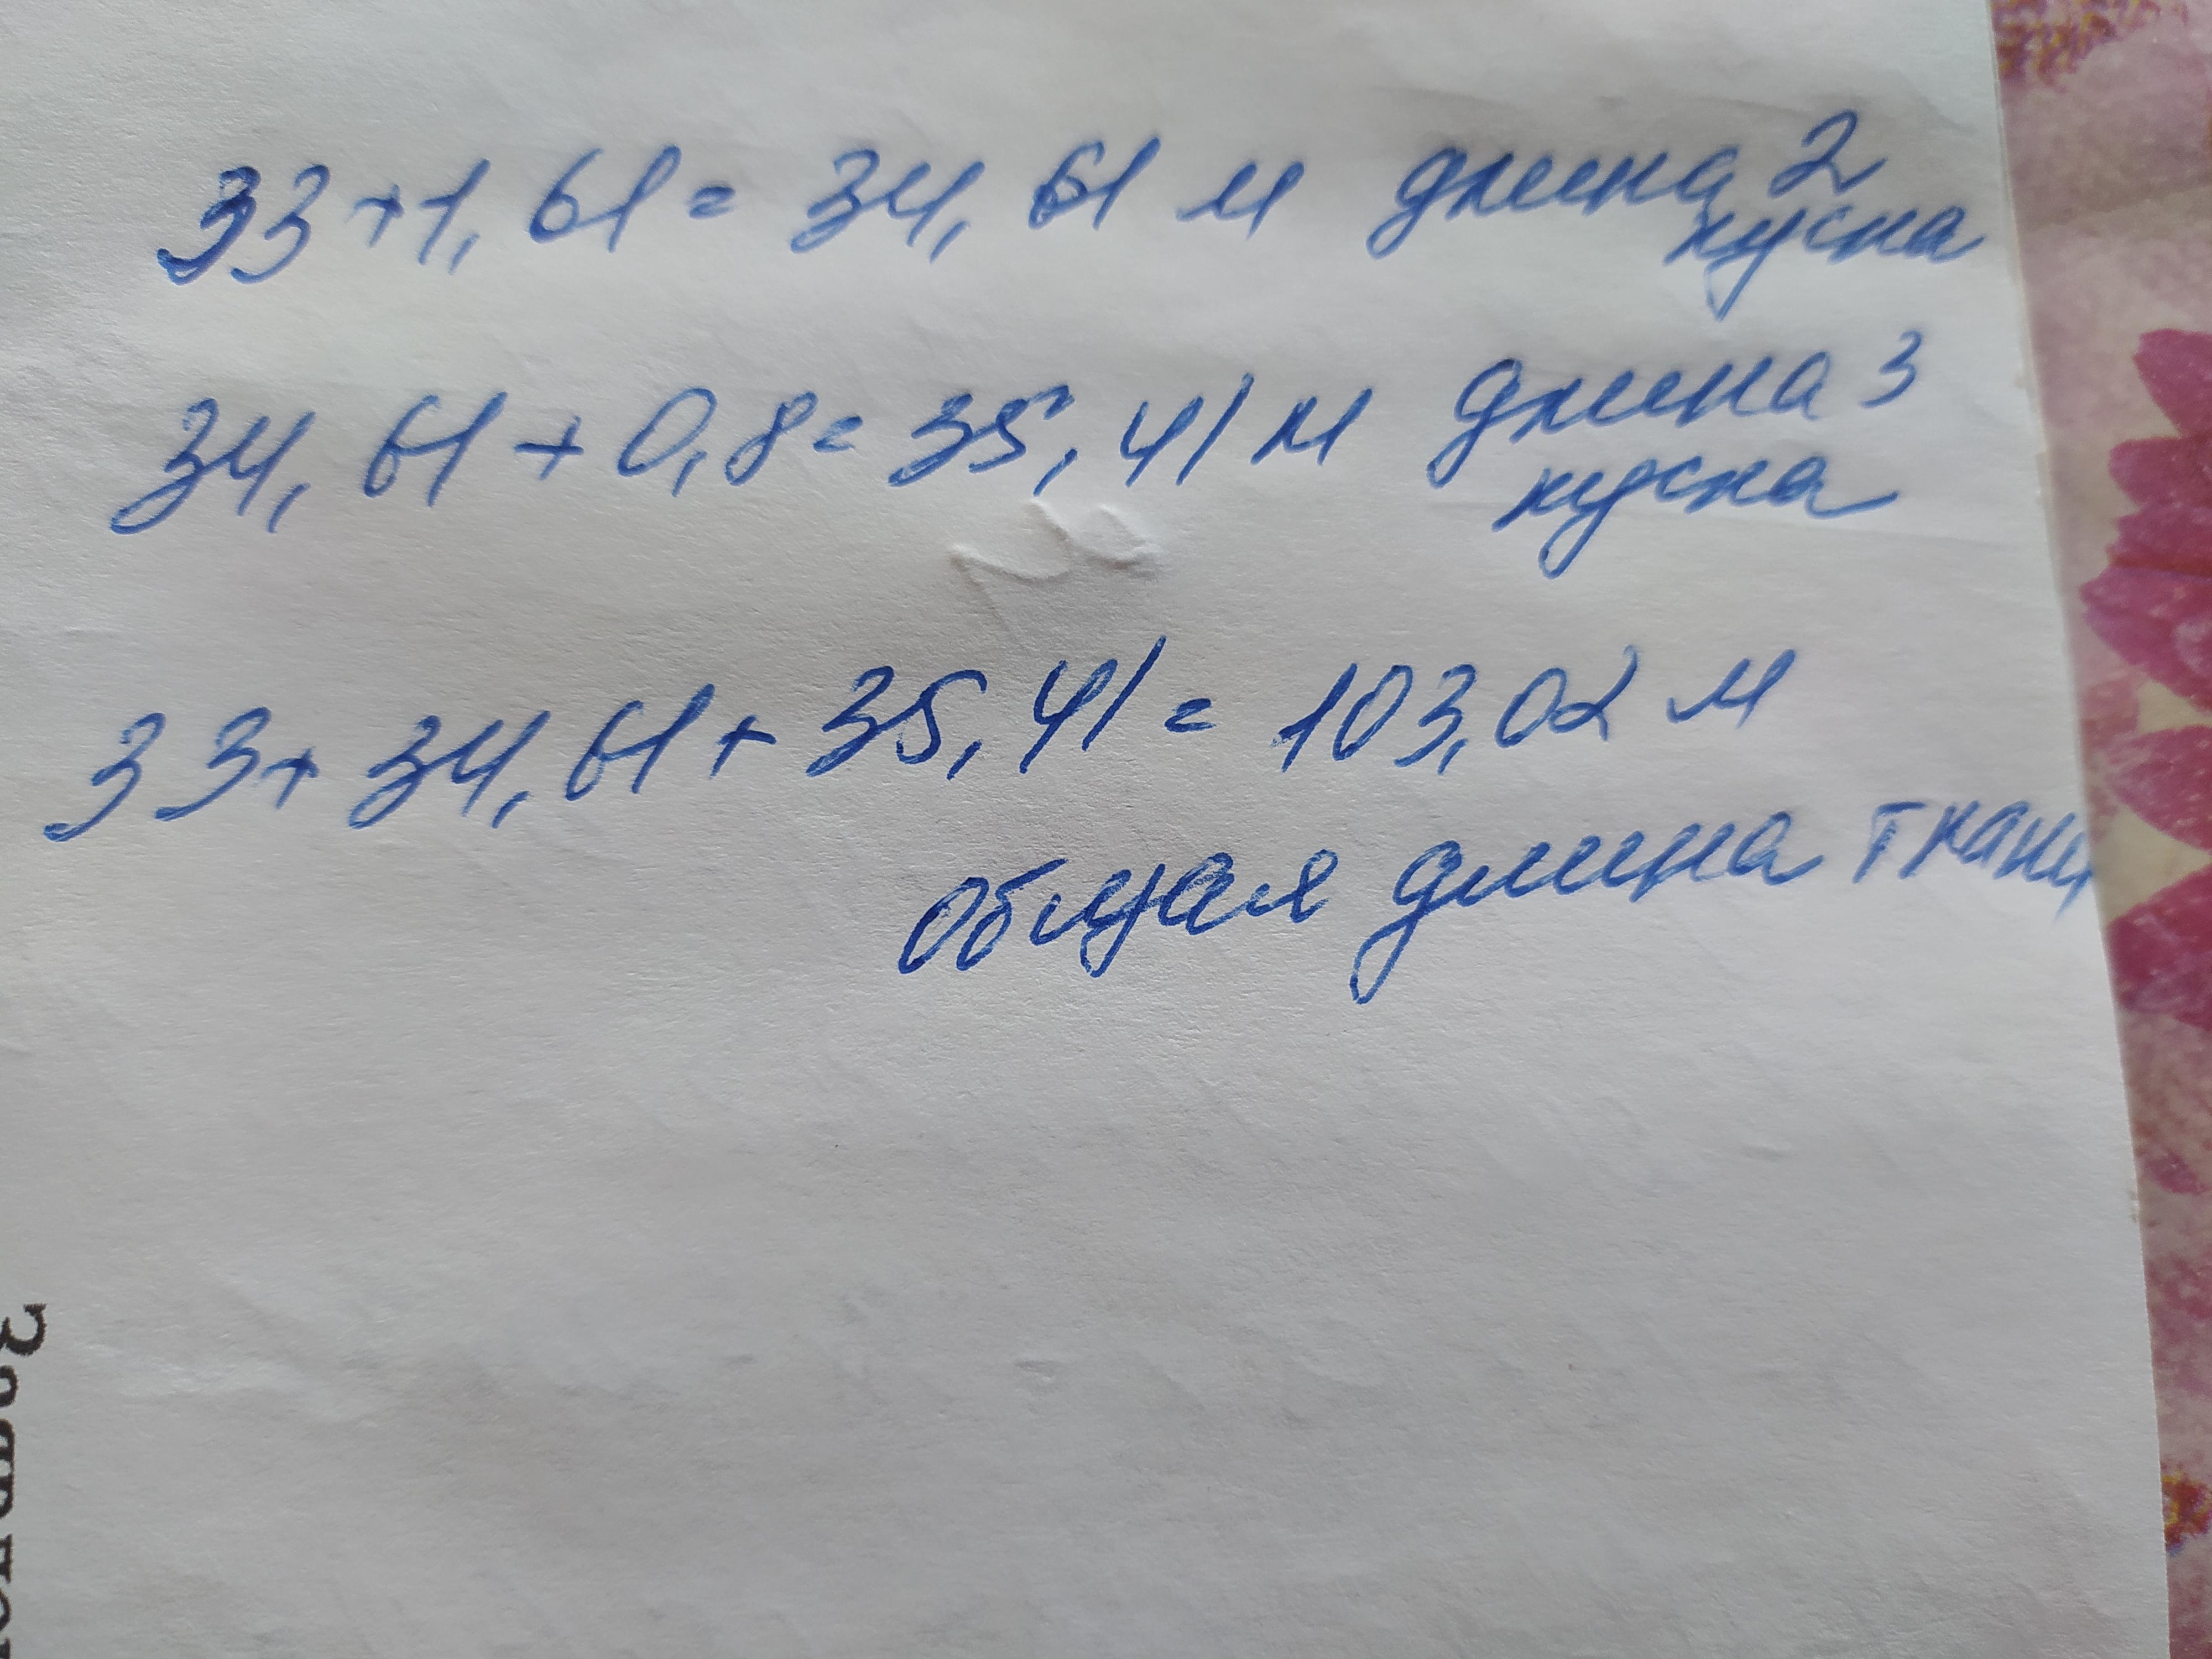 33+1,61= 34,61 м длина 2
куска
34,61+0,8= 35,41 м длина 3
куска
33+34,61+35,41= 103,02 м
общая длина ткани